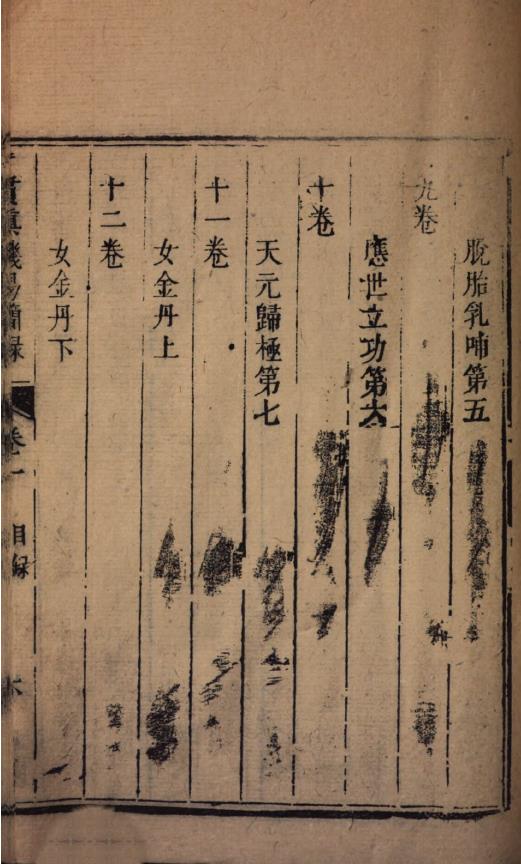 脫胎乳哺第五
九卷
應世立功第六
十卷
天元歸極第七
十一卷
女金丹上
十二卷
女金丹下
貫眞機易簡錄
卷一
目錄